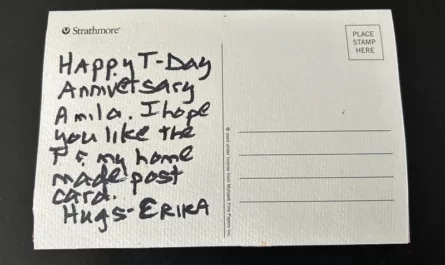 Strathmore®
HAppy T-Day
Anniversary
Amila. I hope
you like the
T & my home
made post
card.
Hugs- ERIKA
PLACE
STAMP
HERE
© used under license from Mohawk Fine Papers Inc.